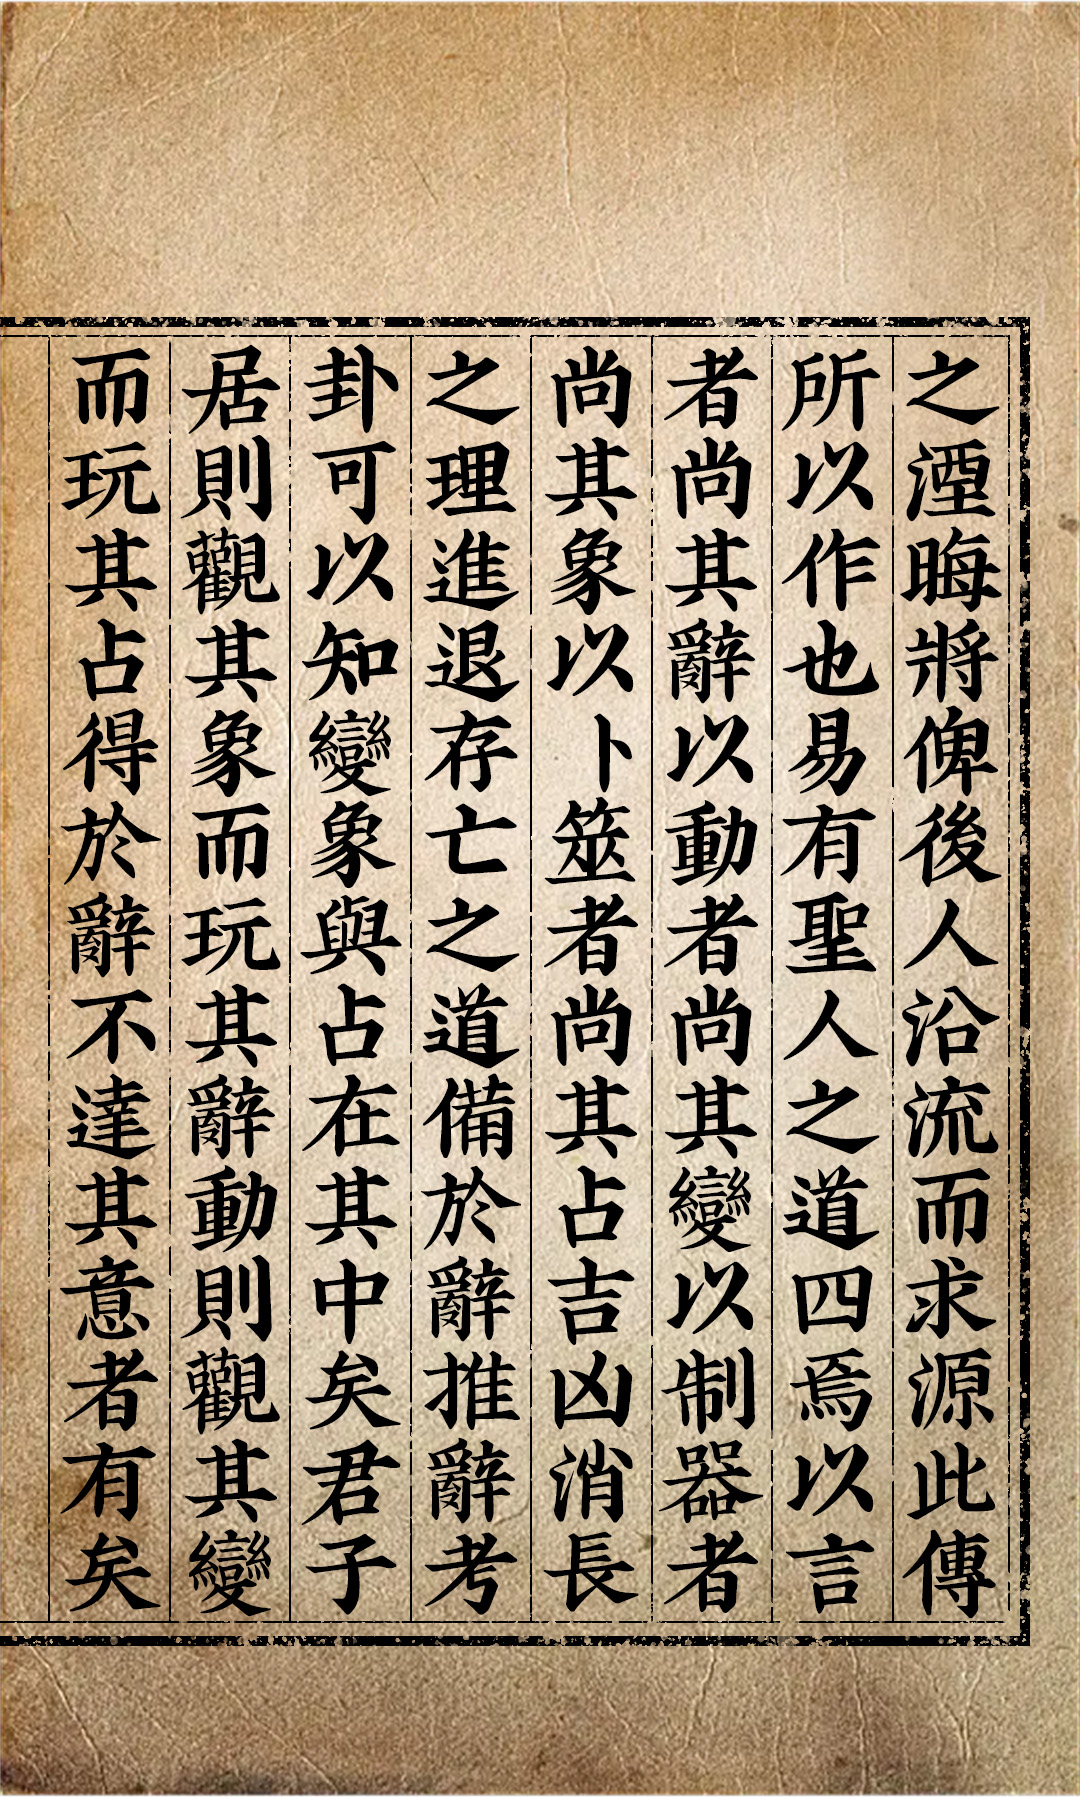 之湮晦將俾後人沿流而求源此傳
所以作也易有聖人之道四焉以言
者尚其辭以動者尚其變以制器者
尚其象以卜筮者尚其占吉凶消長
之理進退存亡之道備於辭推辭考
卦可以知變象與占在其中矣君子
居則觀其象而玩其辭動則觀其變
而玩其占得於辭不達其意者有矣